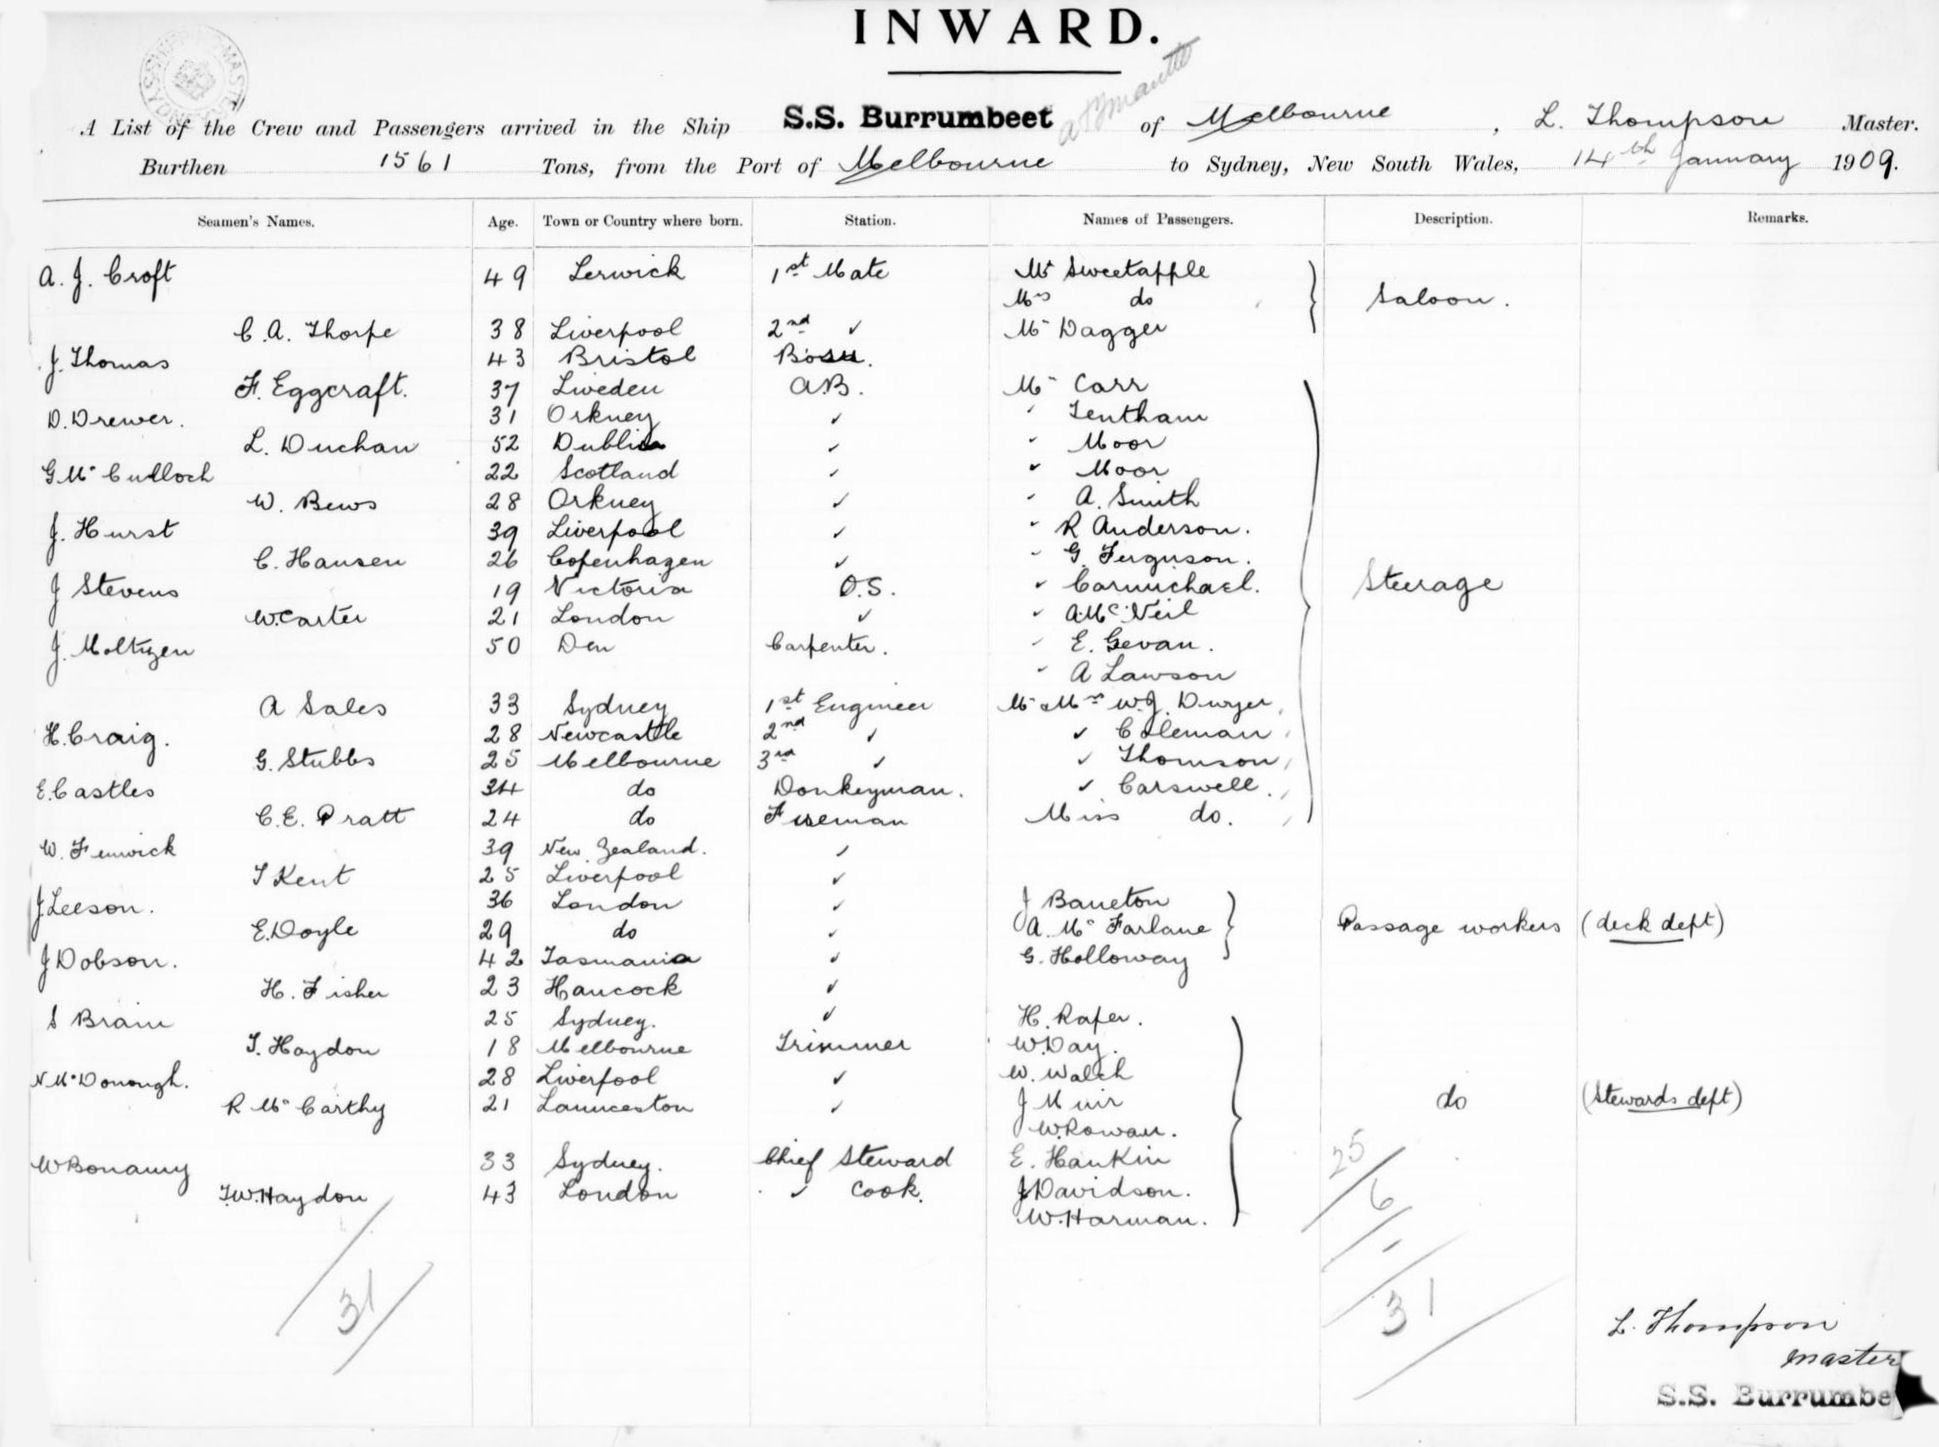 INWARD.
A List of the Crew and Passengers arrived in the Ship S.S. Burrumbeet of Melbourne, L. Thompson Master.
Burthen 1561 Tons, from the Port of Melbourne to Sydney, New South Wales, 14th January 1909.
Seamen's Names. Age. Town or Country where born. Station. Names of Passengers. Description. Remarks.
A. J. Croft 49 Lerwick 1st Mate Mr Sweetapple
Mrs do Saloon.
C. A. Thorpe 38 Liverpool 2nd ✓ Mr Dagger
J. Thomas 43 Bristol Bosu.
F. Eggcraft. 37 Sweden A.B. Mr Carr
D. Drewer. 31 Orkney ✓ " Tentham
L. Duchan 52 Dublin ✓ " Moor
G Mc Culloch 22 Scotland ✓ " Moor
W. Bews 28 Orkney ✓ " A. Smith
J. Hurst 39 Liverpool ✓ " R Anderson.
C. Hansen 26 Copenhagen ✓ " G. Ferguson.
J Stevens 19 Victoria O.S. " Carmichael. Steerage
W. Carter 21 London ✓ " A. Mc Neil
J. Moltzen 50 Den Carpenter. " E. Gevan.
" A Lawson
A Sales 33 Sydney 1st Engineer Mr & Mrs W.J. Dwyer
H. Craig. 28 Newcastle 2nd ✓ ✓ Coleman
G. Stubbs 25 Melbourne 3rd ✓ ✓ Thomson
E. Castles 34 do Donkeyman. ✓ Carswell.
C. E. Pratt 24 do Fireman Miss do.
W. Fenwick 39 New Zealand. ✓
T Kent 25 Liverpool ✓
J Leeson. 36 London ✓ J Baueton
E. Doyle 29 do ✓ A. Mc Farlane Passage workers (deck dept)
J Dobson. 42 Tasmania ✓ G. Holloway
H. Fisher 23 Hancock ✓
S Brain 25 Sydney. ✓ H. Rafer.
T. Haydon 18 Melbourne Trimmer W. Day.
N. Mc Donough. 28 Liverpool ✓ W. Walch
R Mc Carthy 21 Launceston ✓ J Muir do (Stewards dept)
W. Rowan.
W Bonamy 33 Sydney. Chief Steward E. Hankin
T.W. Haydon 43 London ✓ Cook. J Davidson.
W. Harman.
25
6
31
31
L. Thompson
Master
S.S. Burrumbe